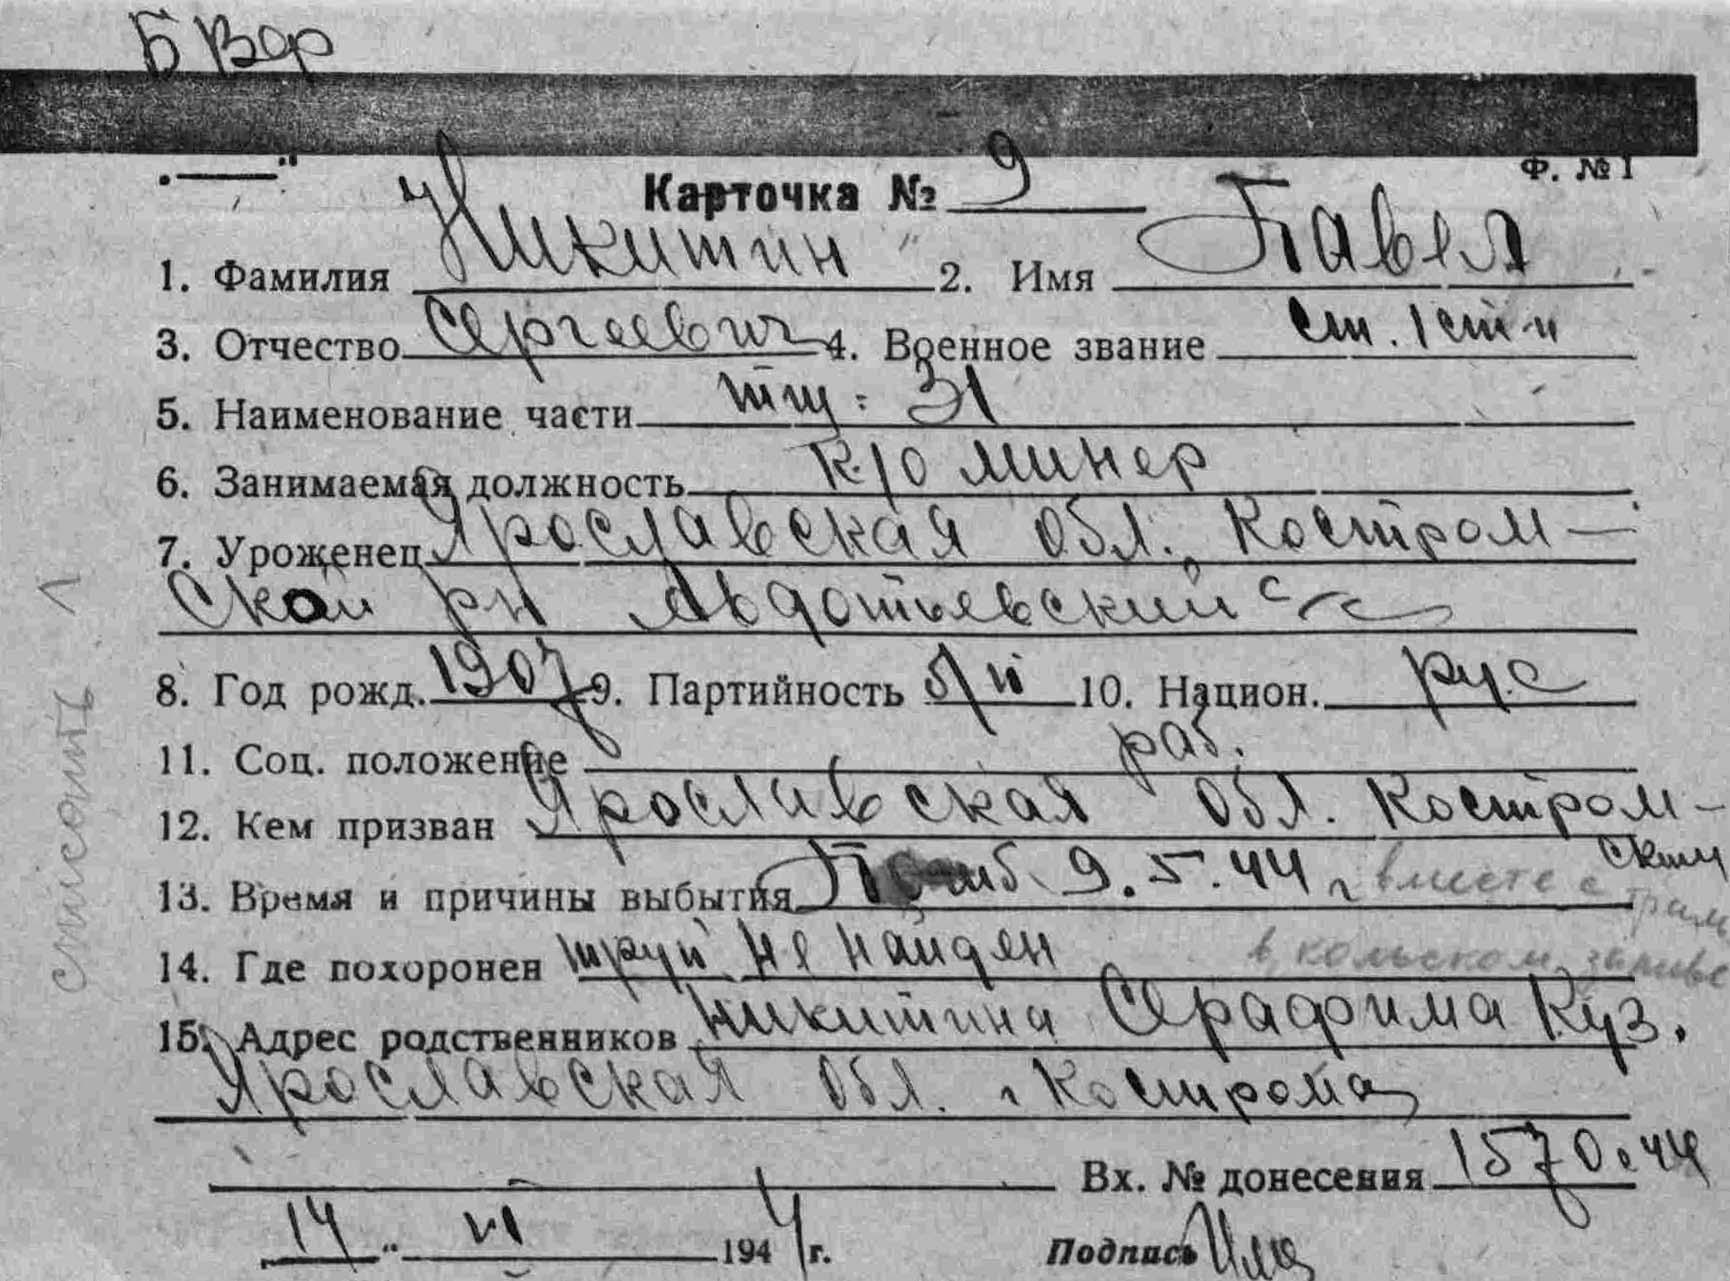 Ф. № 1
Карточка № 9
1. Фамилия Никитин 2. Имя Павел
3. Отчество Сергеевич 4. Военное звание ст. 1 ст-и
5. Наименование части тщ-31
6. Занимаемая должность к/о минер
7. Уроженец Ярославская обл. Костром-
ской рн Авдотьевский с/с
8. Год рожд. 1907 9. Партийность б/п 10. Национ. рус
11. Соц. положение раб.
12. Кем призван Ярославская обл. Костром-
ским
13. Время и причины выбытия Погиб 9.5.44 г вместе с
в кольском заливе
14. Где похоронен труп не найден
15. Адрес родственников Никитина Серафима Куз.
Ярославская обл. г Кострома
Вх. № донесения 1570с 44
14 " VI 1944 г. Подпись